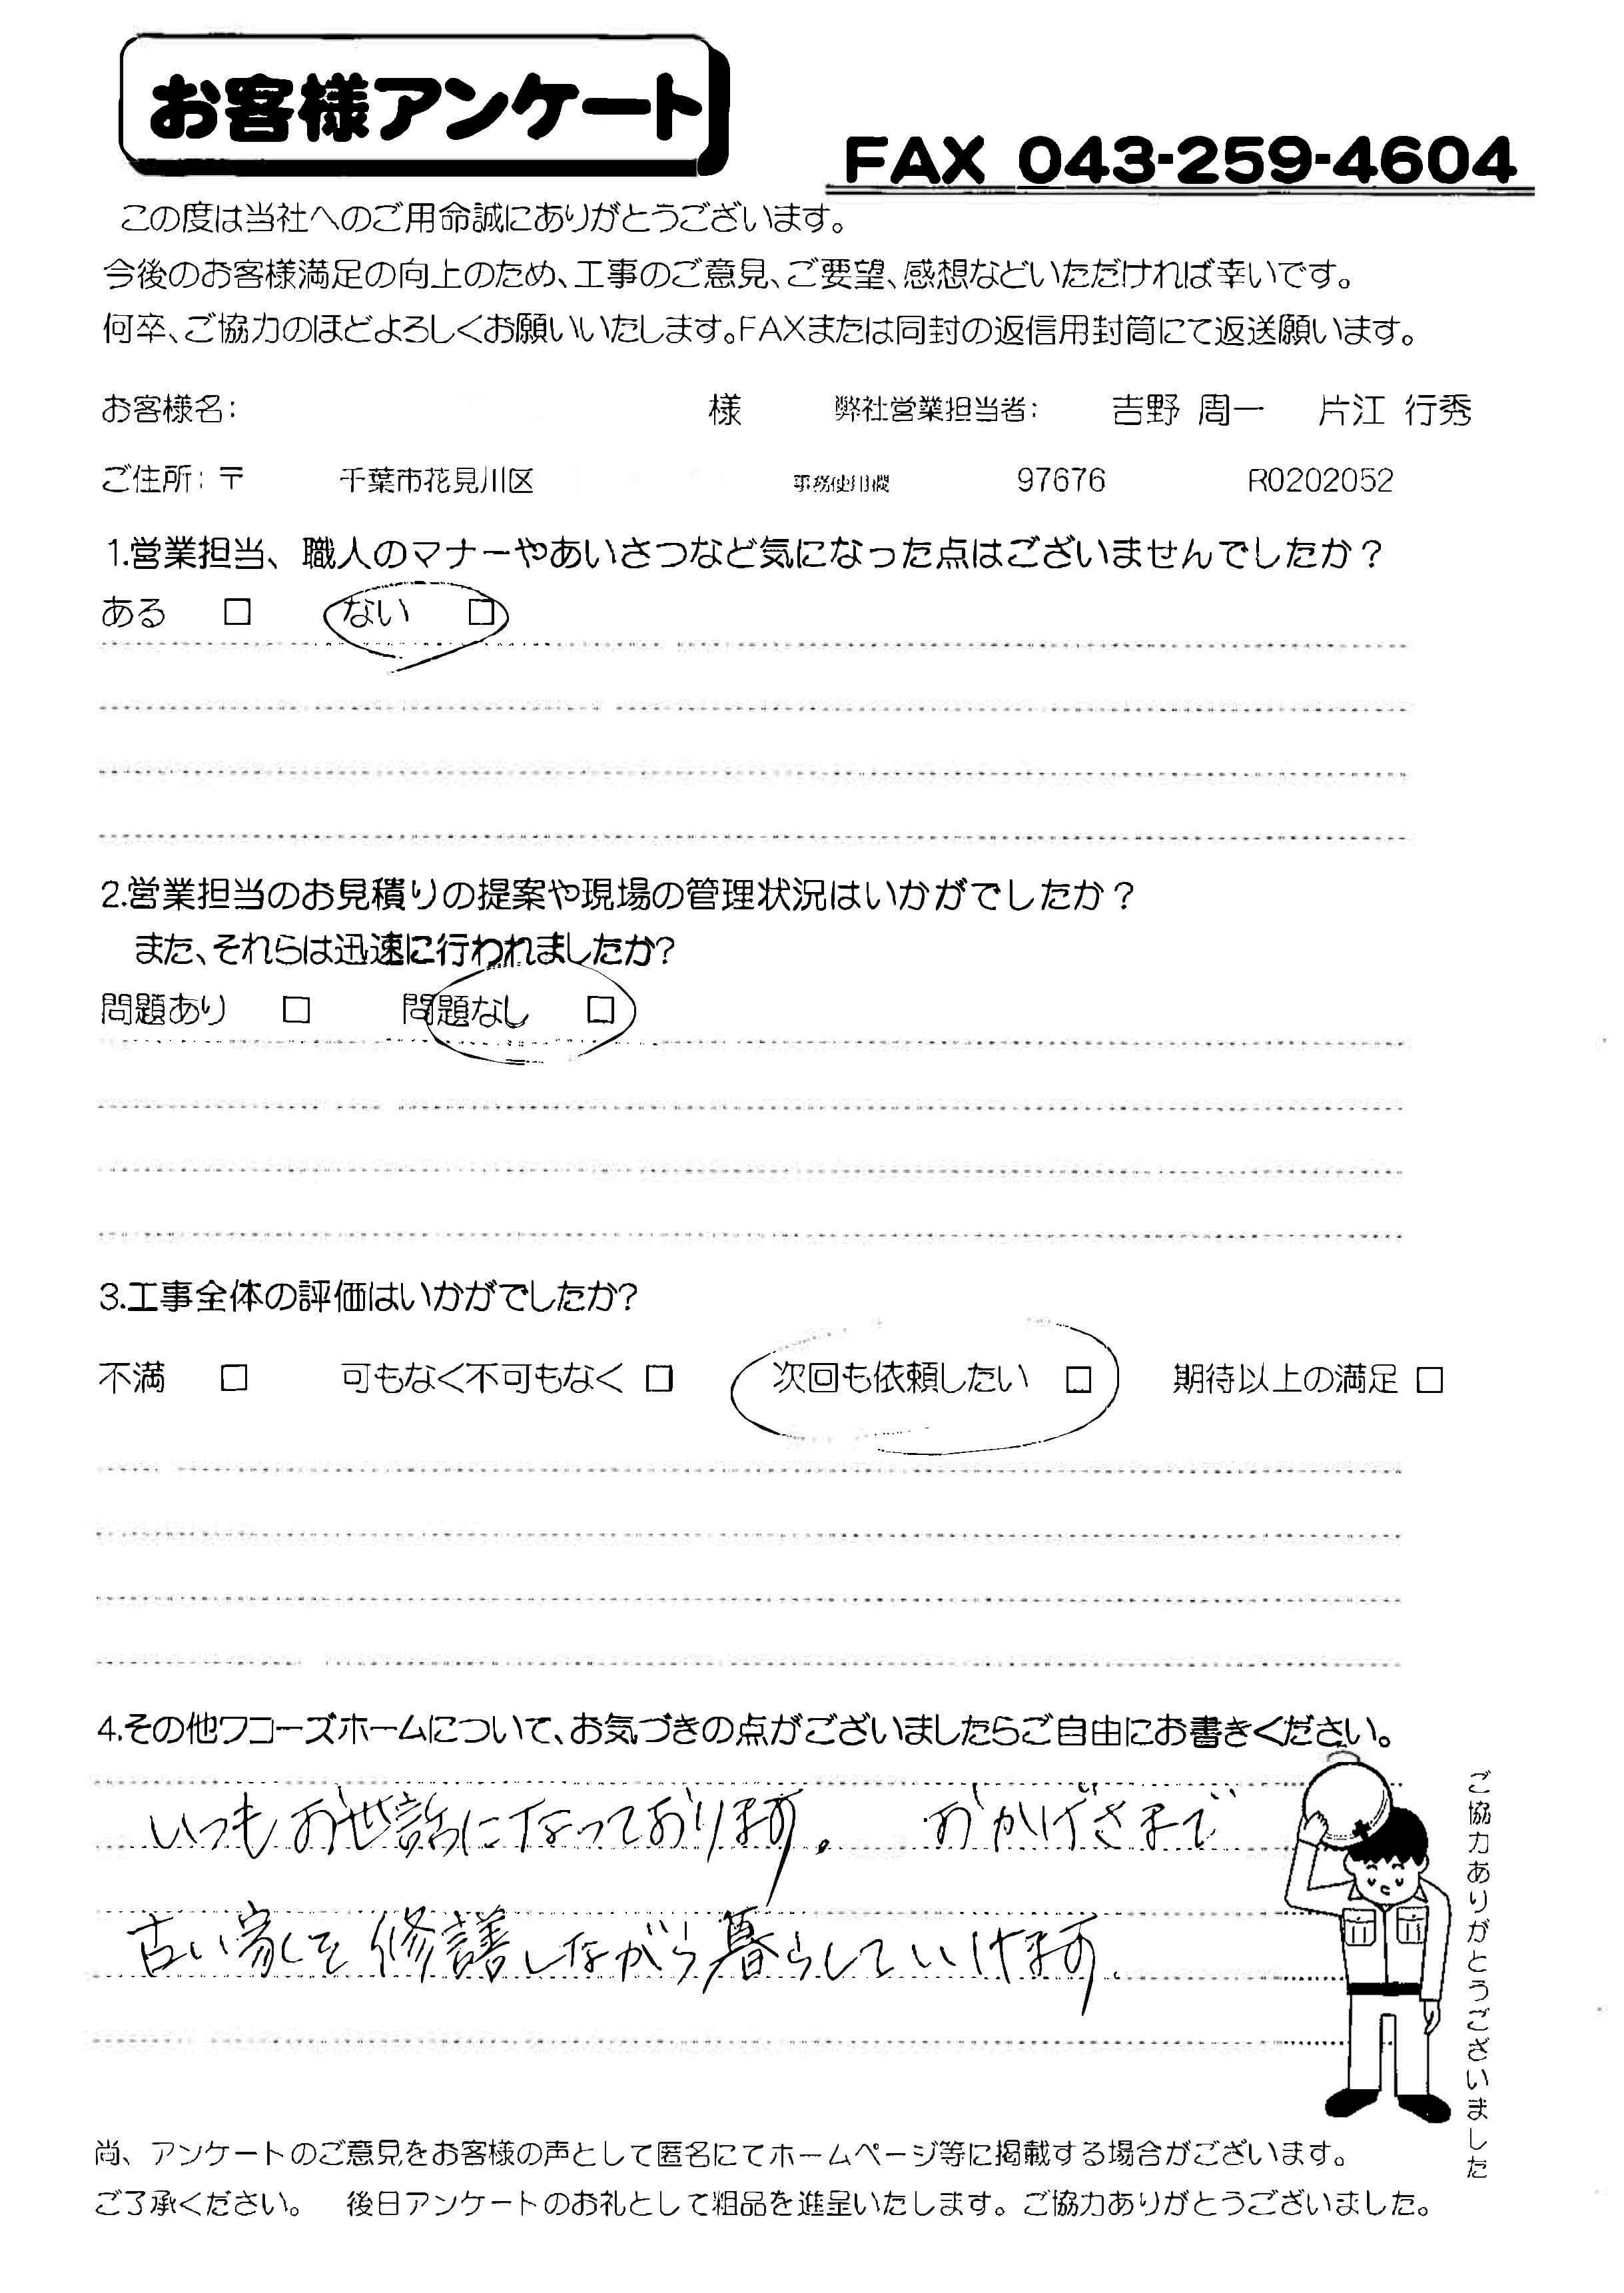 お客様アンケート
FAX 043-259-4604
この度は当社へのご用命誠にありがとうございます。
今後のお客様満足の向上のため、工事のご意見、ご要望、感想などいただければ幸いです。
何卒、ご協力のほどよろしくお願いいたします。FAXまたは同封の返信用封筒にて返送願います。
お客様名: 様 弊社営業担当者: 吉野 周一 片江 行秀
ご住所: 〒 千葉市花見川区 事務使用欄 97676 R0202052
1.営業担当、職人のマナーやあいさつなど気になった点はございませんでしたか？
ある □ ない □
2.営業担当のお見積りの提案や現場の管理状況はいかがでしたか？
また、それらは迅速に行われましたか?
問題あり □ 問題なし □
3.工事全体の評価はいかがでしたか?
不満 □ 可もなく不可もなく □ 次回も依頼したい □ 期待以上の満足 □
4.その他ワコーズホームについて、お気づきの点がございましたらご自由にお書きください。
いつもお世話になっております。 おかげさまで
古い家を修繕しながら暮らしていけます。
ご協力ありがとうございました
尚、アンケートのご意見をお客様の声として匿名にてホームページ等に掲載する場合がございます。
ご了承ください。 後日アンケートのお礼として粗品を進呈いたします。ご協力ありがとうございました。